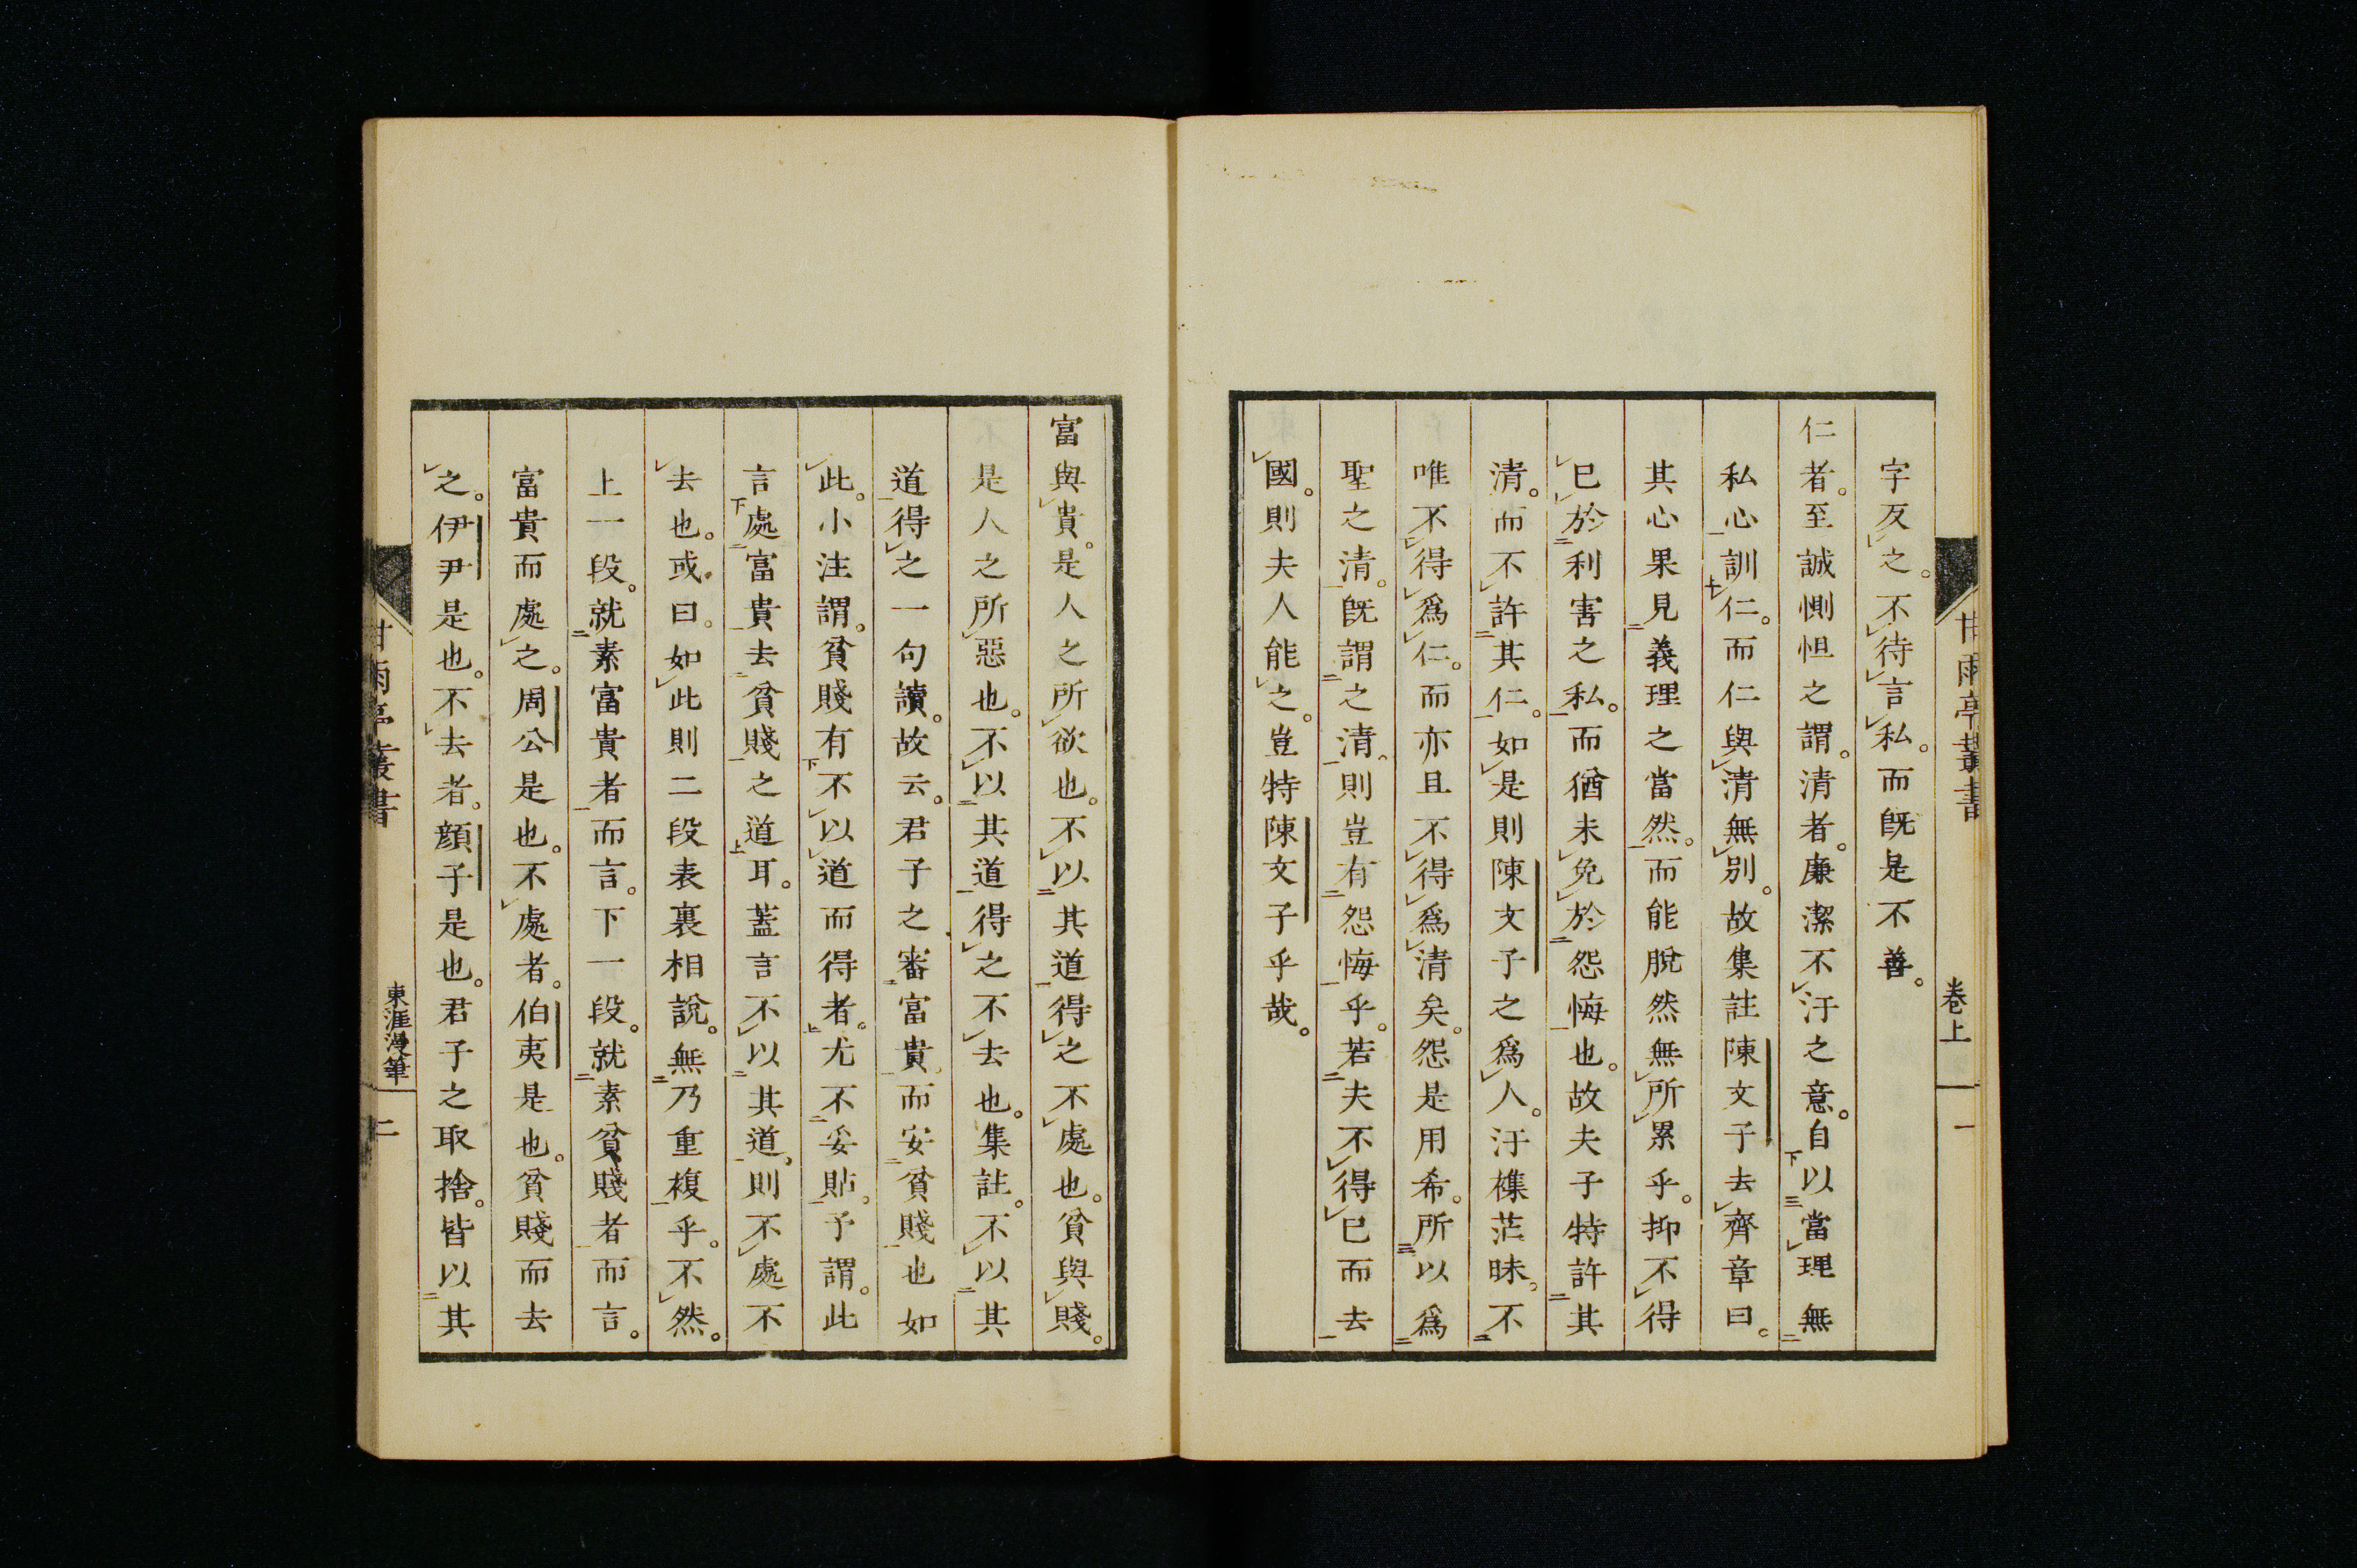 甘雨亭叢書
卷上
一
字反之。不待言私。而既是不善。
仁者。至誠惻怛之謂。清者。廉潔不汙之意。自以當理無
私心訓仁。而仁與清無別。故集註陳文子去齊章曰。
其心果見義理之當然。而能脫然無所累乎。抑不得
已於利害之私。而猶未免於怨悔也。故夫子特許其
清。而不許其仁。如是則陳文子之爲人。汙襍茫昧。不
唯不得爲仁。而亦且不得爲清矣。怨是用希。所以爲
聖之清。既謂之清。則豈有怨悔乎。若夫不得已而去
國。則夫人能之。豈特陳文子乎哉。
富與貴。是人之所欲也。不以其道得之不處也。貧與賤。
是人之所惡也。不以其道得之不去也。集註。不以其
道得之一句讀。故云。君子之審富貴而安貧賤也如
此。小注謂。貧賤有不以道而得者。尤不妥貼。予謂。此
言處富貴去貧賤之道耳。蓋言不以其道。則不處不
去也。或曰。如此則二段表裏相說。無乃重複乎。不然。
上一段。就素富貴者而言。下一段。就素貧賤者而言。
富貴而處之。周公是也。不處者。伯夷是也。貧賤而去
之。伊尹是也。不去者。顏子是也。君子之取捨。皆以其
甘雨亭叢書
東涯漫筆
二